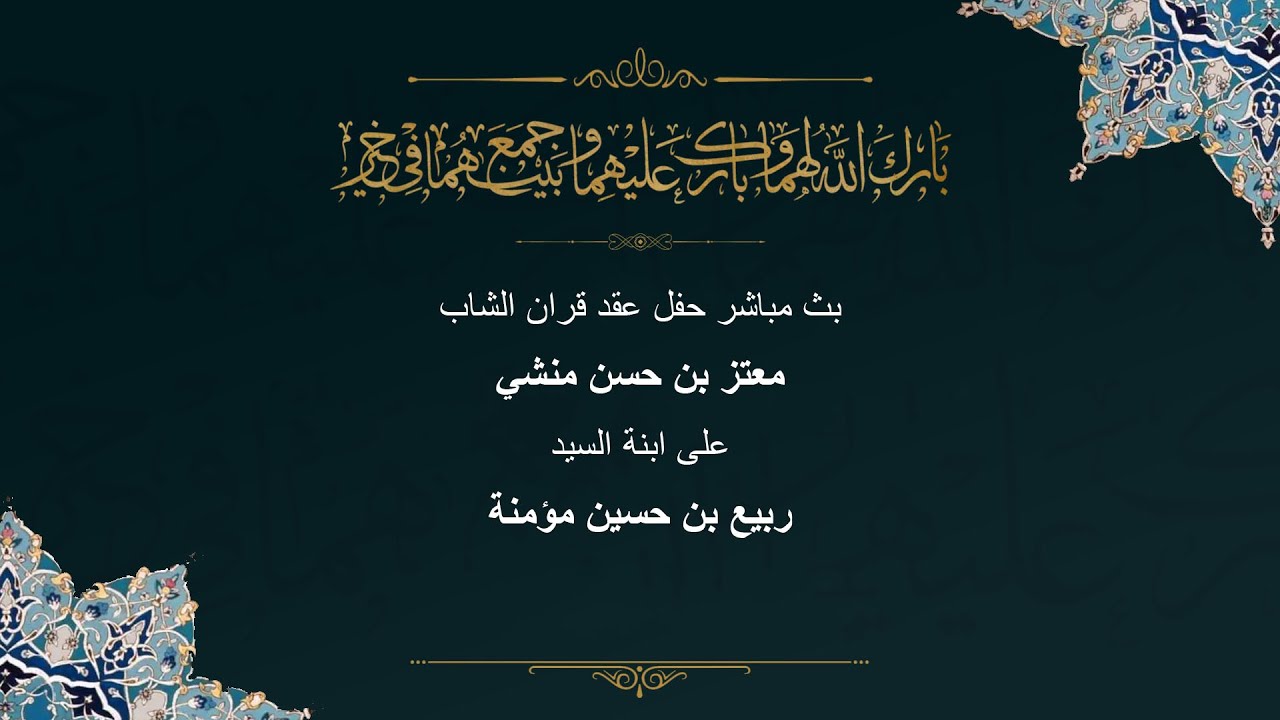 بَارَكَ اللَّهُ لهما وبارك عَليْهِما وجَمَعَ بَيْنَهُمَا فِي خَيْر
بث مباشر حفل عقد قران الشاب
معتز بن حسن منشي
على ابنة السيد
ربيع بن حسين مؤمنة